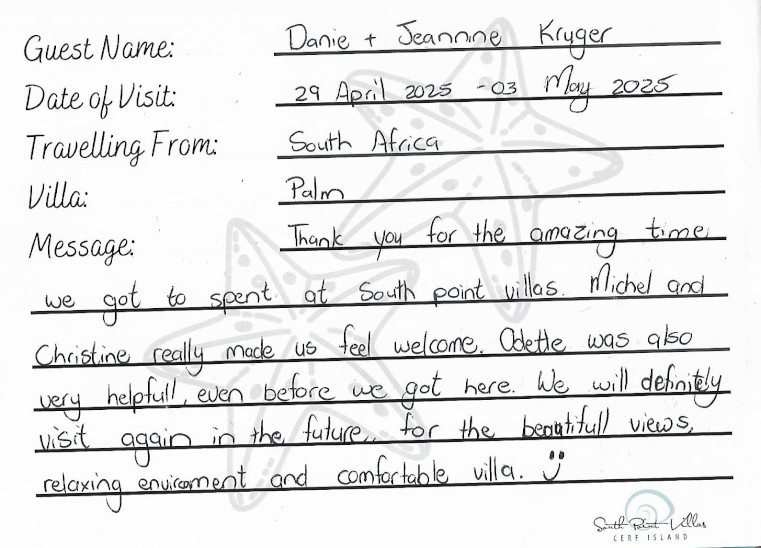 Guest Name: Danie + Jeannine Kryger
Date of Visit: 29 April 2025 - 03 May 2025
Travelling From: South Africa
Villa: Palm
Message: Thank you for the amazing time
we got to spent at South point villas. Michel and
Christine really made us feel welcome. Odette was also
very helpfull, even before we got here. We will definitely
visit again in the future, for the beautifull views,
relaxing enviroment and comfortable villa. Ü
South Point Villas
CERF ISLAND